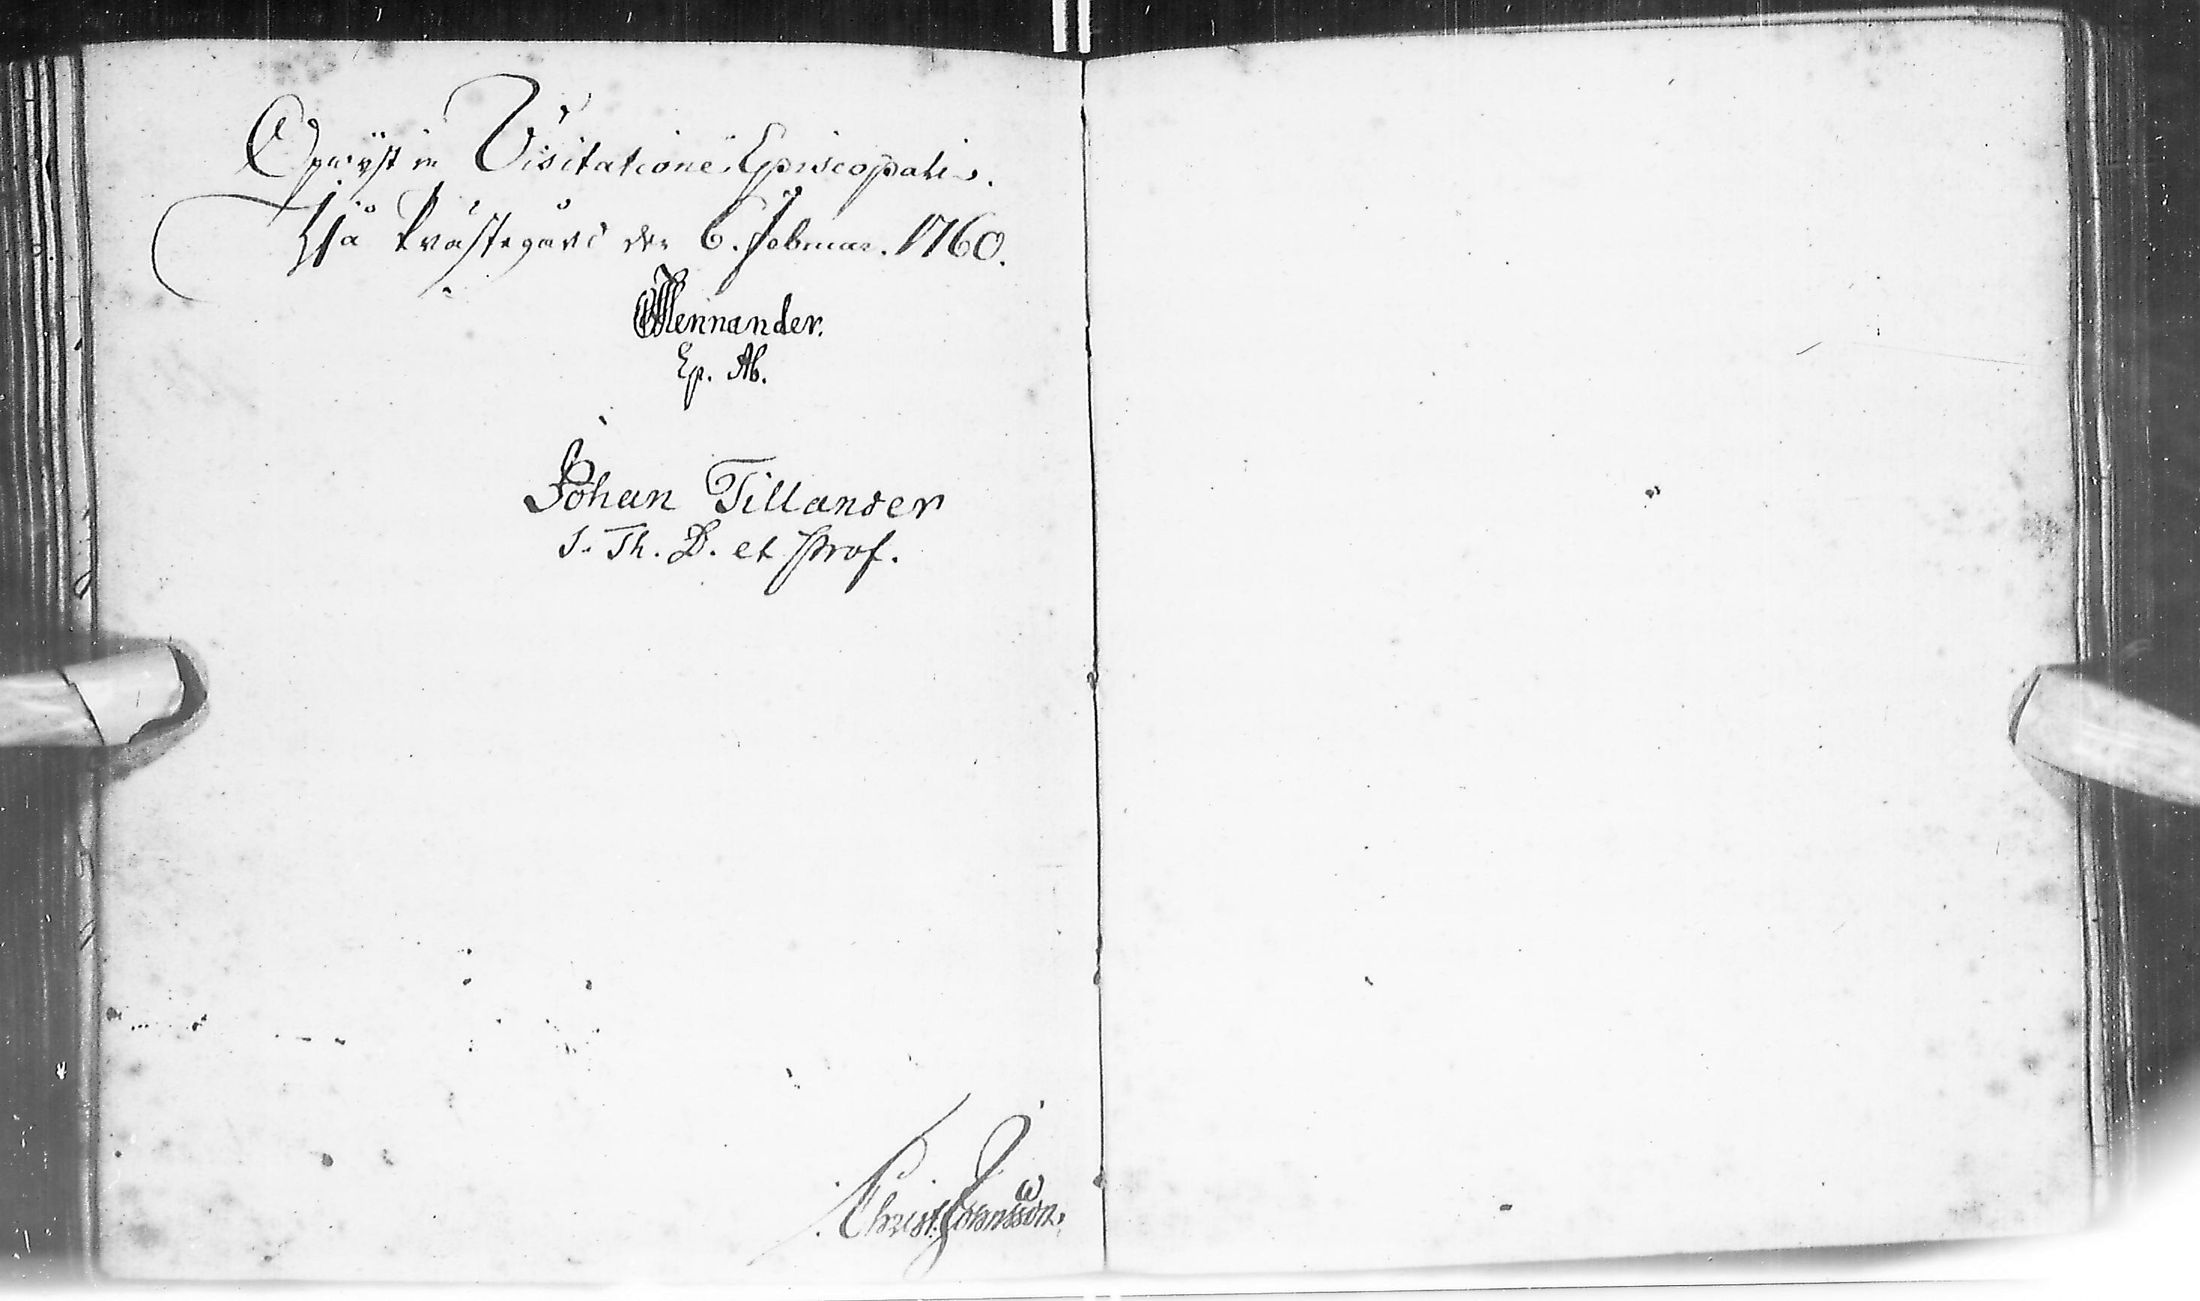 Upwist in Visitatione Episcopali.
Prästegård den 6. Februar. 1760.
Mennander.
Ep. Ab.
Johan Tillander
S. Th. D. et Prof.
Christ. Johansson.